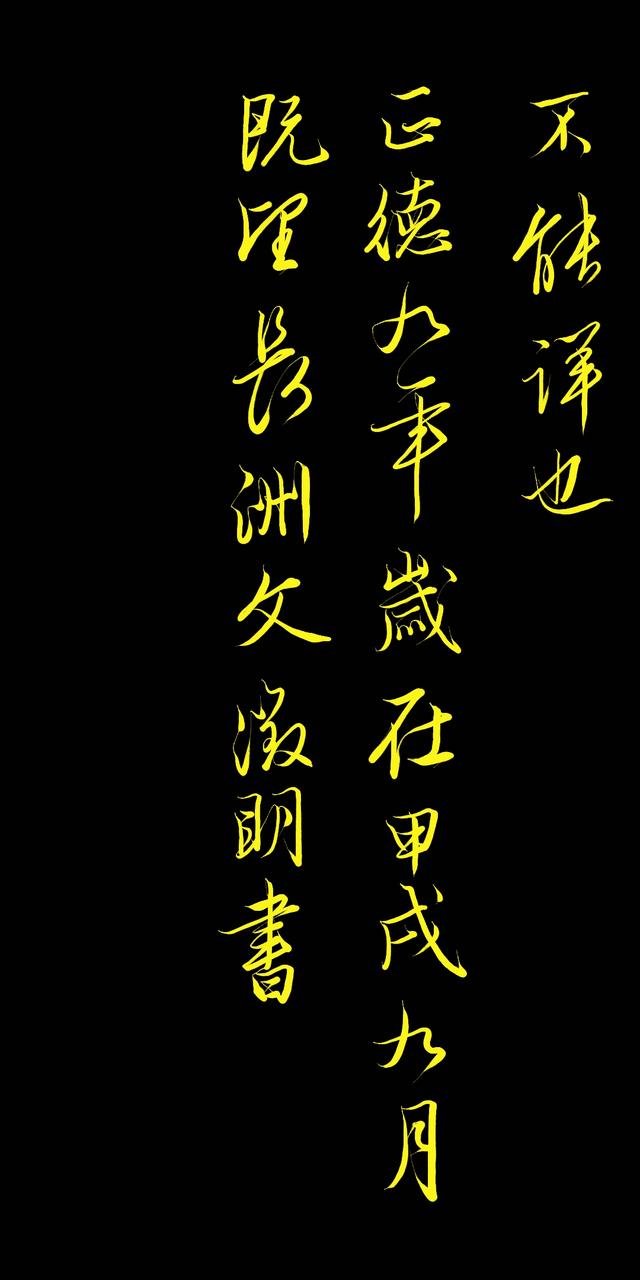 不能详也
正德九年歲在甲戌九月
既望長洲文徵明書